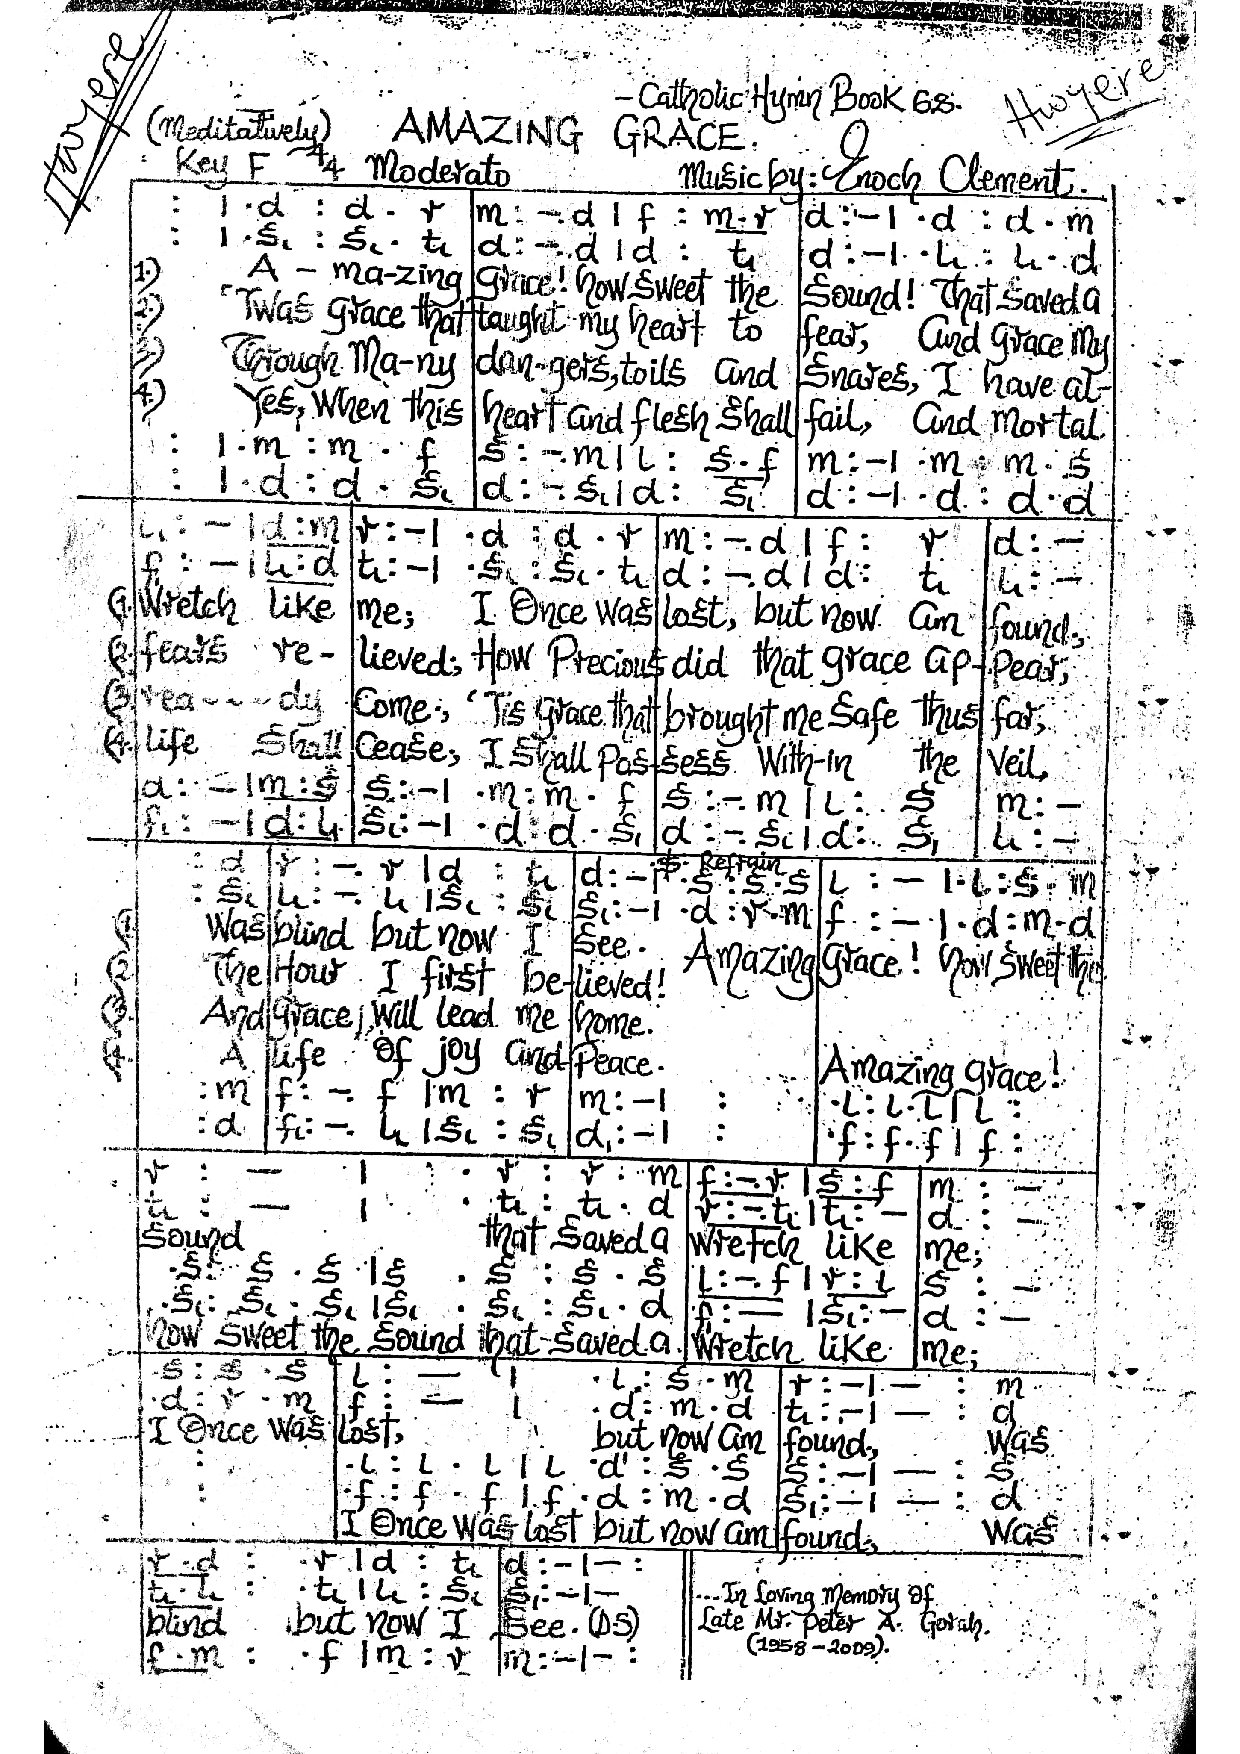 Hwyere
Hwyere
- Catholic Hymn Book 68.
(Meditatively) AMAZING GRACE.
Key F 4/4 Moderato Music by: Enoch Clement.
: | . d : d . r | m : - . d | f : m . r | d : - | . d : d . m
: | . s₁ : s₁ . t₁ | d : - . d | d : t₁ | d : - | . l₁ : l₁ . d
1.) A - ma-zing grace! how sweet the Sound! That saved a
2.) 'Twas grace that taught my heart to fear, And grace my
3.) Through Ma-ny dan-gers, toils and Snares, I have al-
4.) Yes, When this heart and flesh Shall fail, And Mortal
: | . m : m . f | s : - . m | l : s . f | m : - | . m : m . s
: | . d : d . s₁ | d : - . s₁ | d : s₁ | d : - | . d : d . d
l₁ : - | d : m | r : - | . d : d . r | m : - . d | f : r | d : -
f₁ : - | l₁ : d | t₁ : - | . s₁ : s₁ . t₁ | d : - . d | d : t₁ | l₁ : -
1. Wretch like me; I Once was lost, but now am found,
2. fears re - lieved; How Precious did that grace ap- Pear,
3. rea - - - dy Come, 'Tis grace that brought me Safe thus far,
4. life Shall Cease; I Shall Pos- sess With-in the Veil,
d : - | m : s | s : - | . m : m . f | s : - . m | l : s | m : -
f₁ : - | d : l₁ | s₁ : - | . d : d . s₁ | d : - . s₁ | d : s₁ | l₁ : -
: d | r : - . r | d : t₁ | d : - | . s : s . s | l : - | . l : s . m
Refrain
: s₁ | l₁ : - . l₁ | s₁ : s₁ | s₁ : - | . d : r . m | f : - | . d : m . d
1 Was blind but now I See. Amazing grace! how sweet the
2 The Hour I first be- lieved!
3 And grace, will lead me home.
4. A life of joy and Peace. Amazing grace!
: m | f : - . f | m : r | m : - | : . l : l . l | l :
: d | f₁ : - . l₁ | s₁ : s₁ | d₁ : - | : . f : f . f | f :
r : - | . r : r . m | f : - . r | s : f | m : -
t₁ : - | . t₁ : t₁ . d | r : - . t₁ | t₁ : - | d : -
Sound that saved a Wretch like me;
. s : s . s | s . s : s . s | l : - . f | r : l | s : -
. s₁ : s₁ . s₁ | s₁ . s₁ : s₁ . d | f₁ : - | s₁ : - | d : -
how sweet the Sound that saved a Wretch like me;
. s : s . s | l : - | . l : s . m | r : - | - : m
. d : r . m | f : - | . d : m . d | t₁ : - | - : d
I Once was lost, but now am found, was
: | . l : l . l | l . d' : s . s | s : - | - : s
: | . f : f . f | f . d : m . d | s₁ : - | - : d
I Once was lost but now am found, was
r . d : . r | d : t₁ | d : - | - :
t₁ . l₁ : . t₁ | l₁ : s₁ | s₁ : - | -
blind but now I See. (DS)
f . m : . f | m : r | m : - | - :
...In Loving Memory of
Late Mr. Peter A. Gorah.
(1958 - 2009).